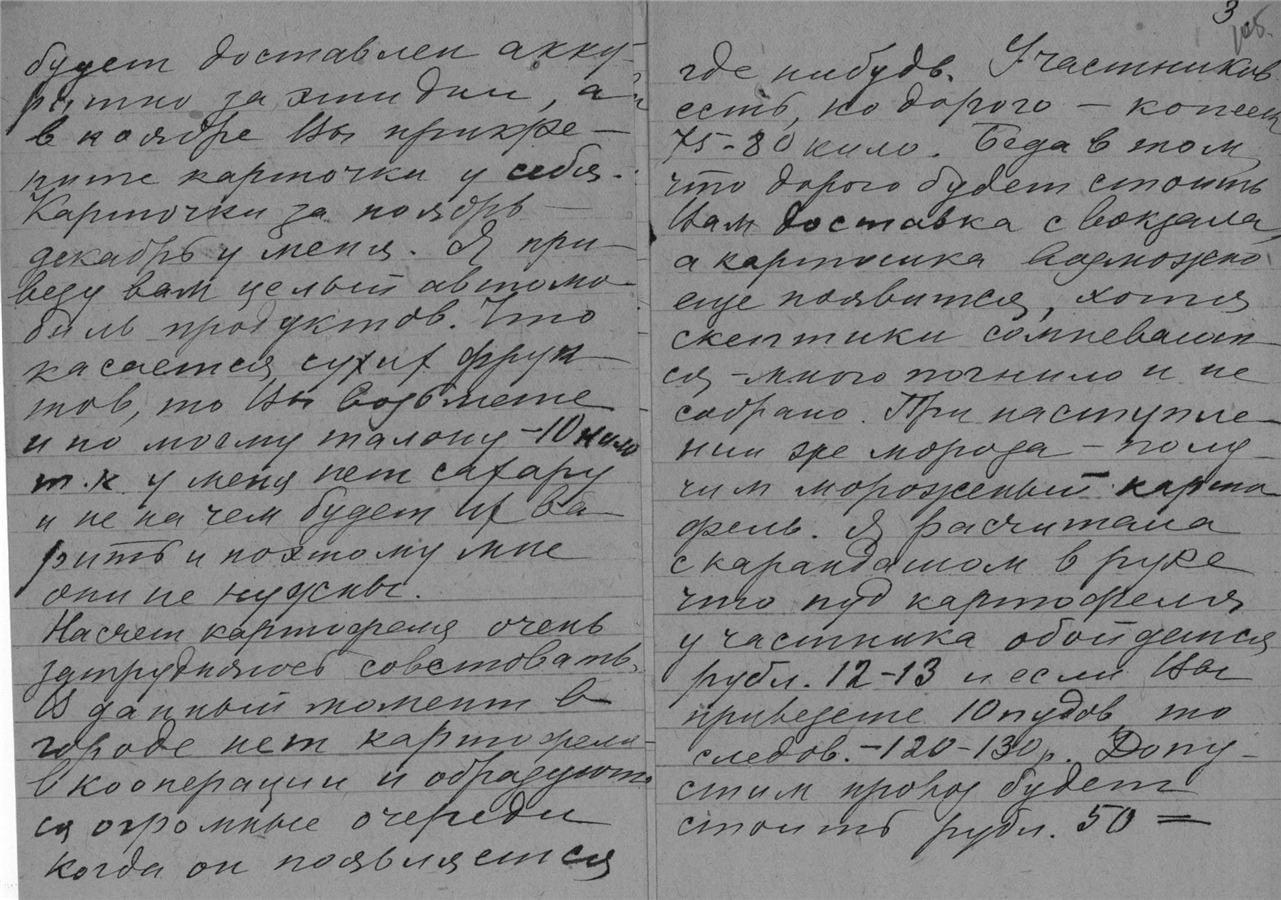 будет доставлен акку-
ратно за эти дни, а
в ноябре Вы прикре-
пите карточки у себя.
Карточки за ноябрь -
декабрь у меня. Я при-
везу вам целый автомо-
биль продуктов. Что
касается сухих фрук-
тов, то Вы возьмете
и по моему талону - 10 кило
т.к у меня нет сахару
и не на чем будет их ва-
рить и поэтому мне
они не нужны.
Насчет картофеля очень
затрудняюсь советовать.
В данный момент в
городе нет картофеля
в кооперации и образуют-
ся огромные очереди
когда он появляется
3
об.
где нибудь. У частников
есть, но дорого - копеек
75-80 кило. Беда в том,
что дорого будет стоить
Вам доставка с вокзала,
а картошка возможно
еще появится, хотя
скептики сомневают-
ся - много погнило и не
собрано. При наступле-
нии же мороза - полу-
чим мороженый карто
фель. Я расчитала
с карандашом в руке
что пуд картофеля
у частника обойдется
рубл. 12-13 и если Вы
привезете 10 пудов, то
следов. - 120-130 р. Допу-
стим провоз будет
стоить рубл. 50 =